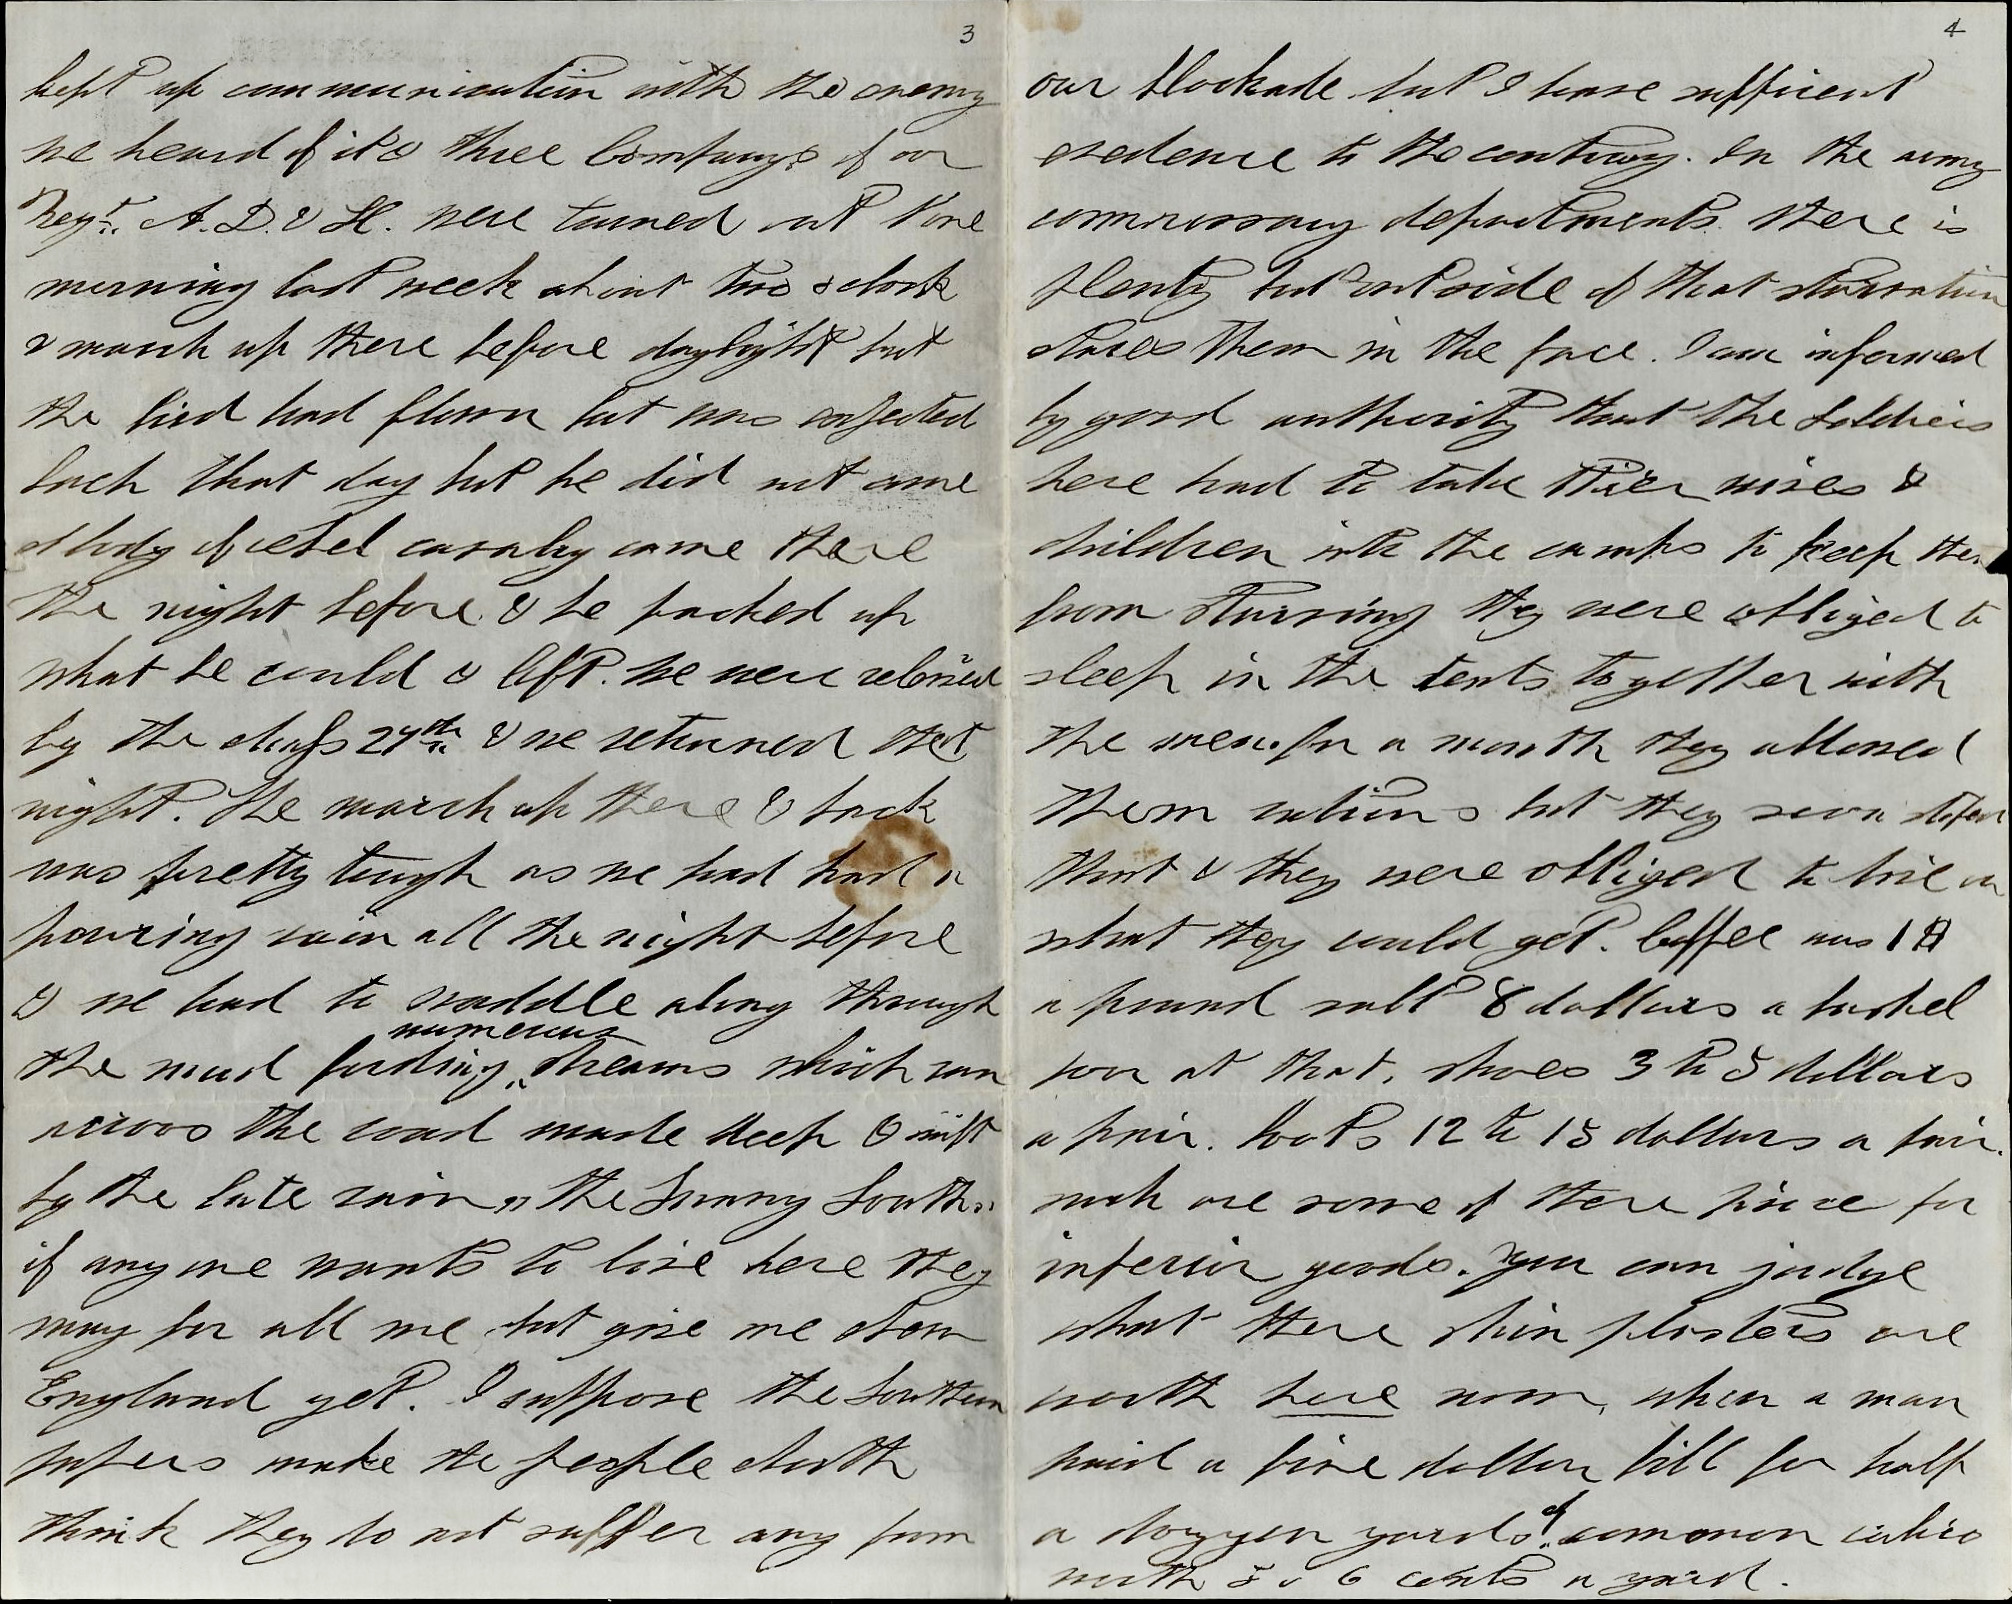 3
kept up communication with the enemy
we heard of it & three Companys of our
Regt. A. D. & H. were turned out one
morning last week about two oclock
& march up there before daylight but
the bird had flown but was expected
back that day but he did not come
a body of rebel cavalry came there
the night before & he packed up
what he could & left. We were relieved
by the Mass 27th & we returned that
night. The march up there & back
was pretty tough as we had had a
pouring rain all the night before
& we had to waddle along through
the mud fording numerous streams which run
across the road made deep & swift
by the late rain, " the Sunny South "
if any one wants to live here they
may for all me but give me
England yet. I suppose the Southern
papers make the people North
think they do not suffer any from
4
our blockade but I have sufficent
evedence to the contrary. In the army
commissary departments there is
plenty but outside of that starvation
stares them in the face. I am informed
by good authority that the Soldiers
here had to take thier wives &
children into the camps to keep them
from starving they were obliged to
sleep in the tents together with
the men. for a month they allowed
them rations but they soon stoped
that & they were obliged to live on
what they could get. Coffee was 1 $
a pound salt 8 dollars a bushel
poor at that. shoes 3 to 5 dollars
a pair. boots 12 to 15 dollars a pair.
such are some of there price for
inferior goods. You can judge
what there shin plasters are
worth here now, when a man
paid a five dollar bill for half
a dozzen yards of common calico
worth 5 or 6 cents a yard.